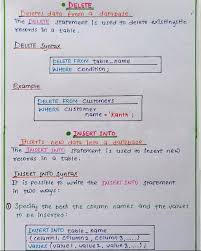 DELETE
Deletes data from a database.
The DELETE statement is used to delete existing
records in a table.
DELETE Syntax
DELETE FROM table_name
WHERE condition;
Example
DELETE FROM Customers
WHERE Customer
name = 'Kanth';
INSERT INTO
Inserts new data into a database.
The INSERT INTO statement is used to insert new
records in a table.
INSERT INTO Syntax
It is possible to write the INSERT INTO statement
in two ways:
① Specify both the column names and the values
to be inserted:
INSERT INTO table_name
(column1, column2, column3, ...)
VALUES (value1, value2, value3, ...);